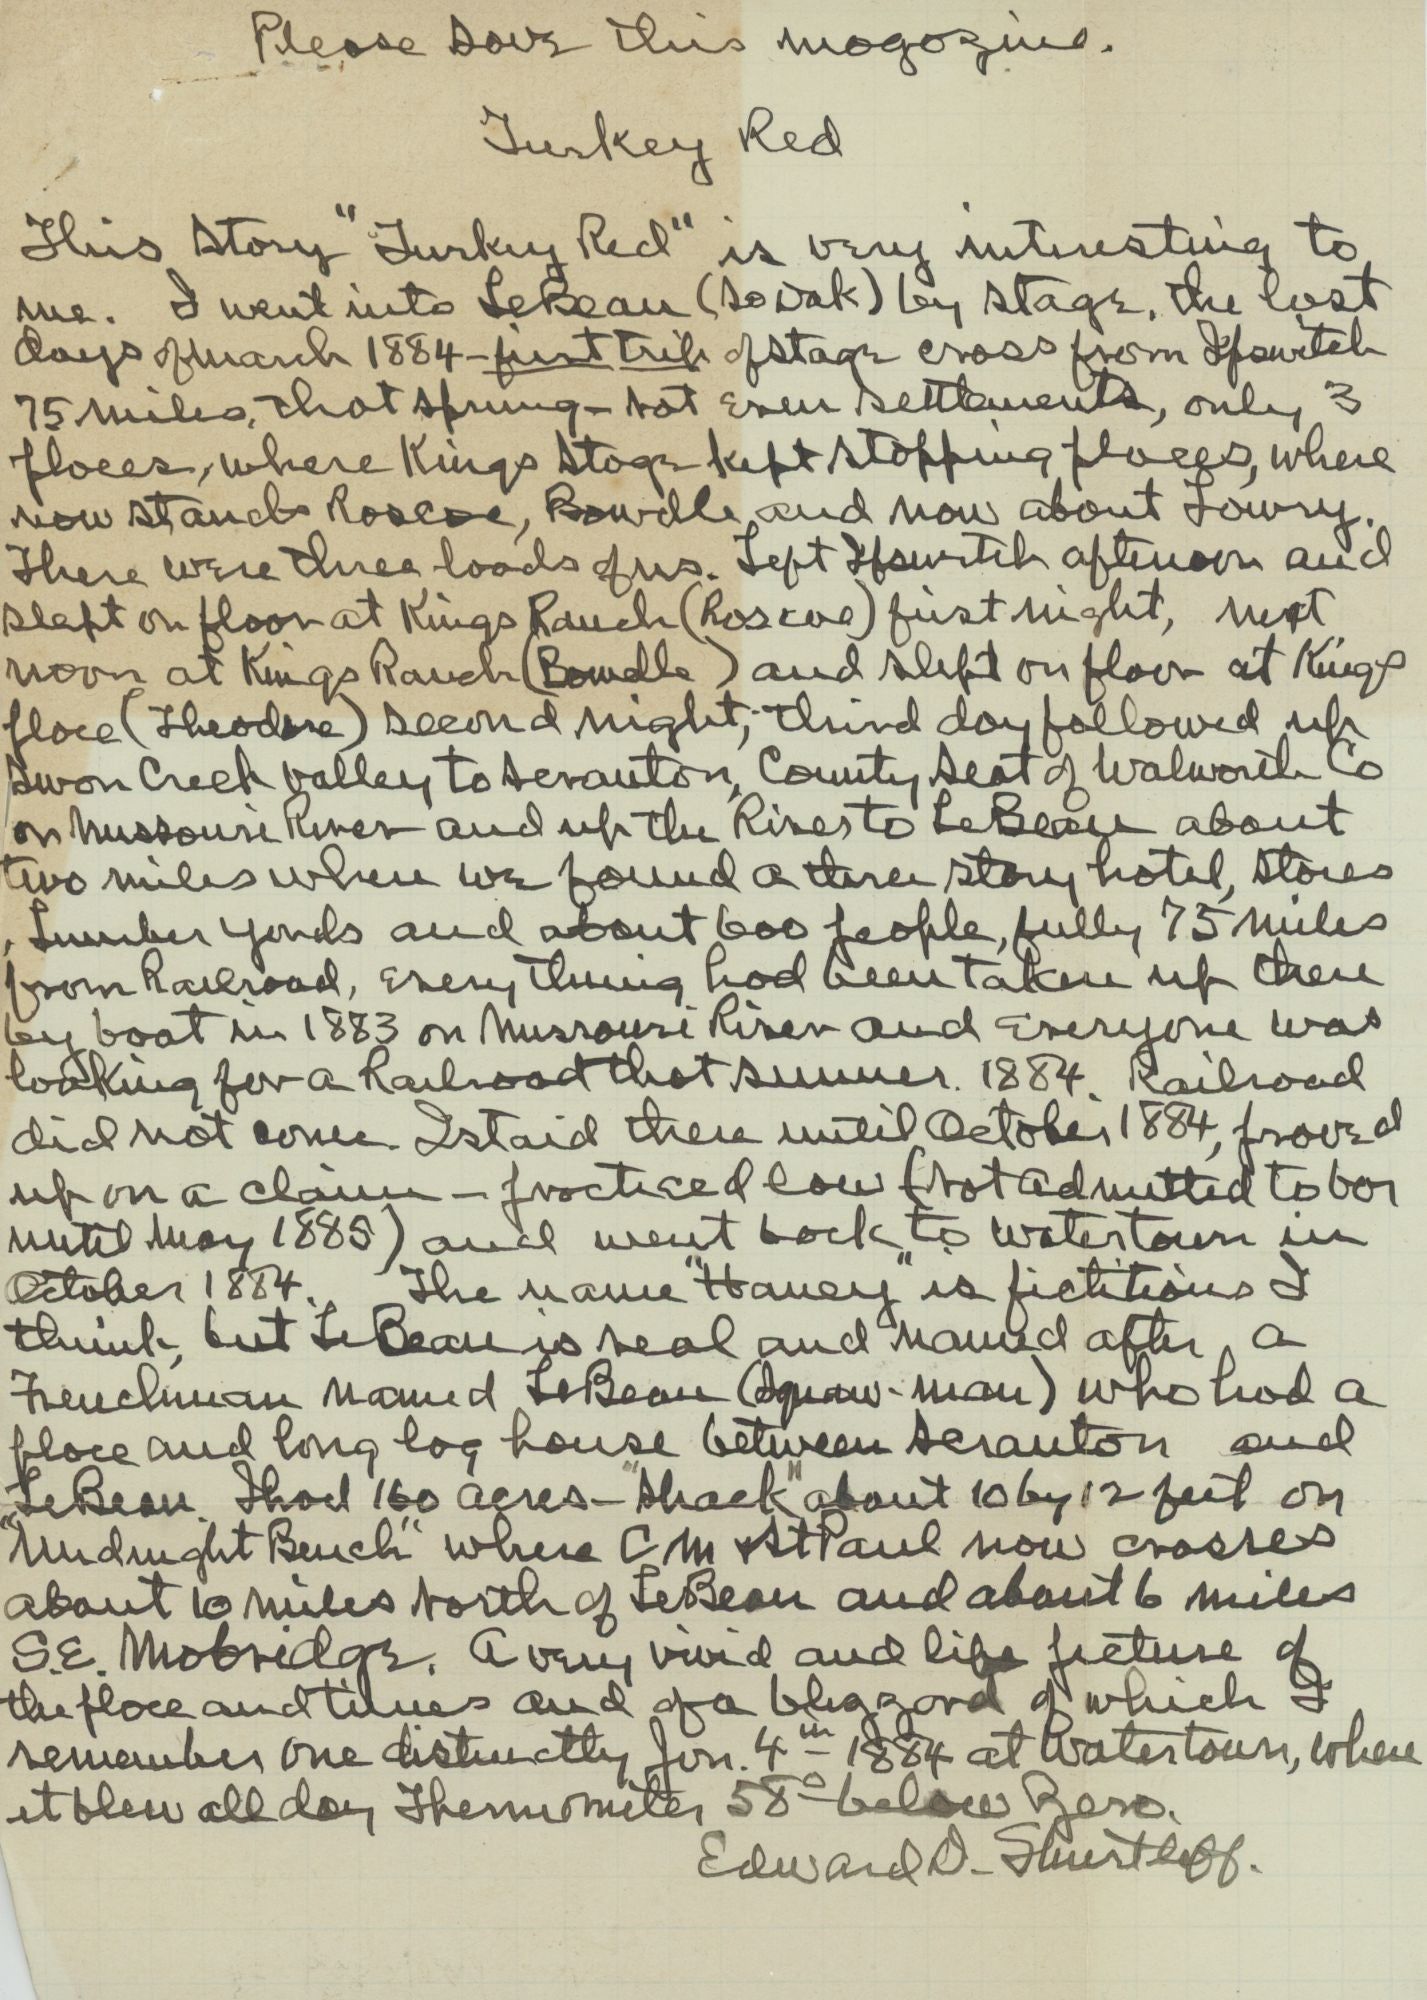 Please save this magazine.
Turkey Red
This story "Turkey Red" is very interesting to
me. I went into LeBeau (So Dak) by stage, the last
days of March 1884 – first trip of stage cross from Ipswitch
75 miles, that spring – not even settlements, only 3
places, where Kings Stage kept stopping places, where
now stands Roscoe, Bowdle and now about Lowry.
There were three loads of us. Left Ipswitch afternoon and
slept on floor at Kings Ranch (Roscoe) first night, next
noon at Kings Ranch (Bowdle) and slept on floor at Kings
place (Theodore) second night, third day followed up
Swan Creek valley to Scranton, County Seat of Walworth Co
on Missouri River and up the River to LeBeau about
two miles when we found a three story hotel, stores
, Lumber yards and about 600 people, fully 75 miles
from Railroad, everything had been taken up there
by boat in 1883 on Missouri River and everyone was
looking for a Railroad that summer. 1884. Railroad
did not come. I staid there until October 1884, proved
up on a claim – practiced law (not admitted to bar
until May 1885) and went back to Watertown in
October 1884. The name "Haney" is fictitious I
think, but LeBeau is real and named after a
Frenchman named LeBeau (Squaw-man) who had a
place and long log house between Scranton and
LeBeau. I had 160 acres – "Shack" about 10 by 12 feet on
"Midnight Bench" where C M & St Paul now crosses
about 10 miles north of LeBeau and about 6 miles
S.E. Mobridge. A very vivid and life picture of
the place and times and of a blizzard of which I
remember one distinctly Jan. 4th – 1884 at Watertown, where
it blew all day Thermometer 58° below Zero.
Edward D. Shurtleff.